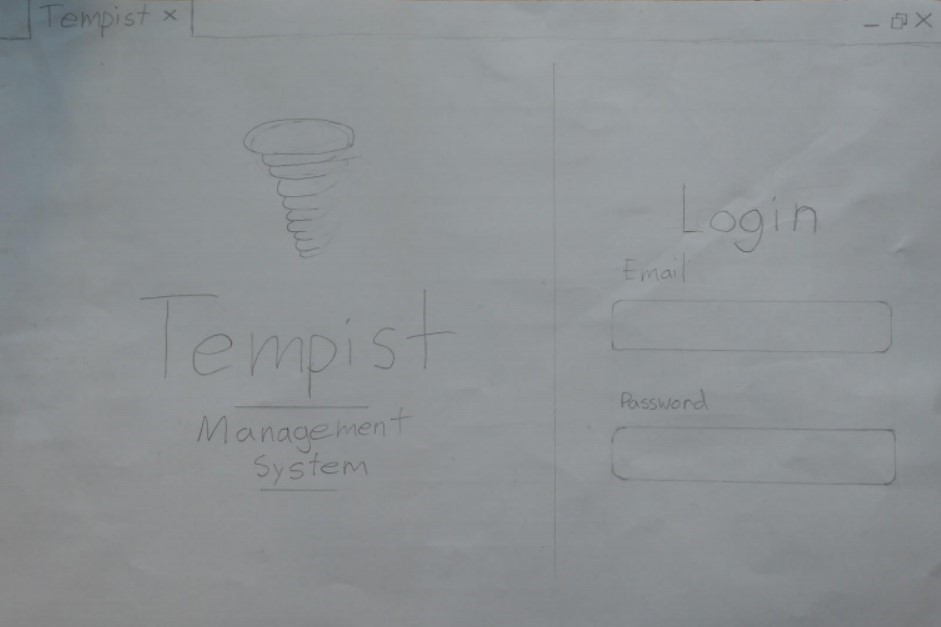 Tempist ×
Tempist
Management
System
Login
Email
Password